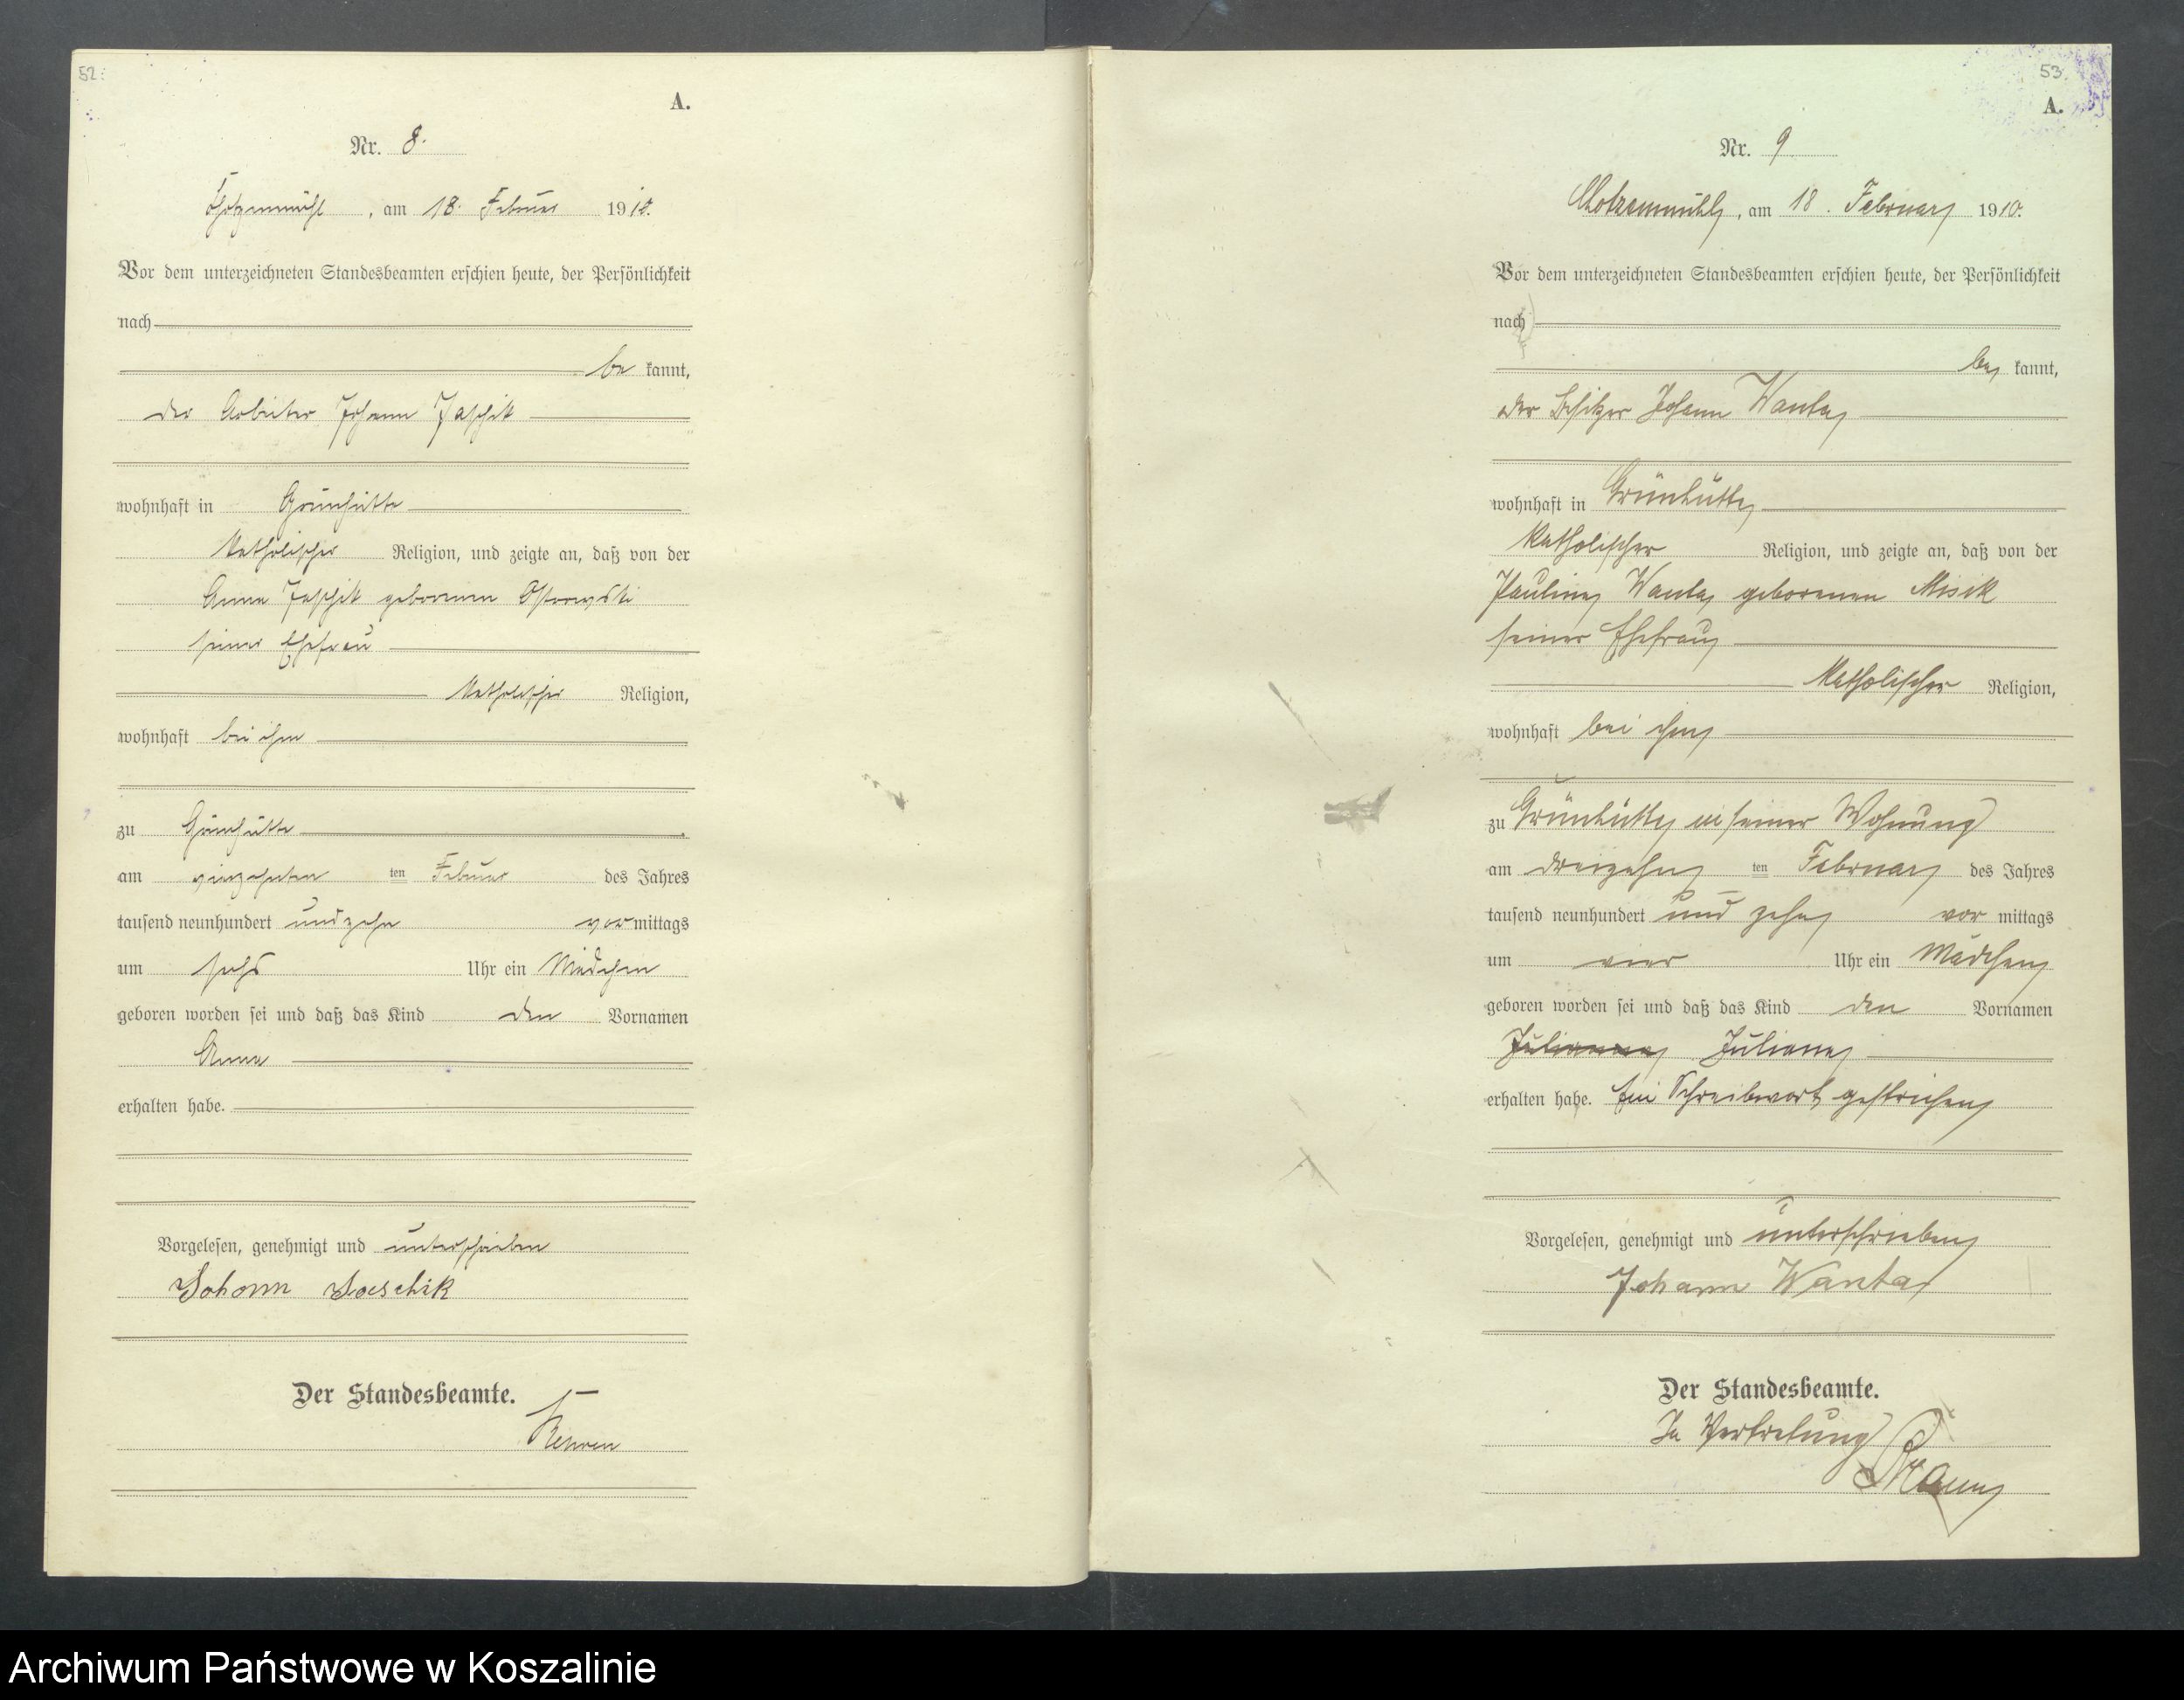 52.
A.
Nr. 8.
Chotzenmühl, am 18. Februar 1910.
Vor dem unterzeichneten Standesbeamten erschien heute, der Persönlichkeit
nach
be kannt,
der Arbeiter Johann Jaschik
wohnhaft in Grünhütte
katholischer Religion, und zeigte an, daß von der
Anna Jaschik geborenen
seiner Ehefrau
katholischer Religion,
wohnhaft bei ihm
zu Grünhütte
am vierzehnten ten Februar des Jahres
tausend neunhundert und zehn vor mittags
um sechs Uhr ein Mädchen
geboren worden sei und daß das Kind den Vornamen
Anna
erhalten habe.
Vorgelesen, genehmigt und unterschrieben
Johann Jaeschik
Der Standesbeamte.
53.
A.
Nr. 9
Chotzenmühl, am 18. Februar 1910.
Vor dem unterzeichneten Standesbeamten erschien heute, der Persönlichkeit
nach
be kannt,
der Besitzer Johann Wanta
wohnhaft in Grünhütte
katholischer Religion, und zeigte an, daß von der
Pauline Wanta geborenen Misik
seiner Ehefrau
katholischer Religion,
wohnhaft bei ihm
zu Grünhütte in seiner Wohnung
am dreizehn ten Februar des Jahres
tausend neunhundert und zehn vor mittags
um vier Uhr ein Mädchen
geboren worden sei und daß das Kind den Vornamen
Juliana
erhalten habe. Ein Schreibwort gestrichen
Vorgelesen, genehmigt und unterschrieben
Johann Wanta
Der Standesbeamte.
In Vertretung
Archiwum Państwowe w Koszalinie